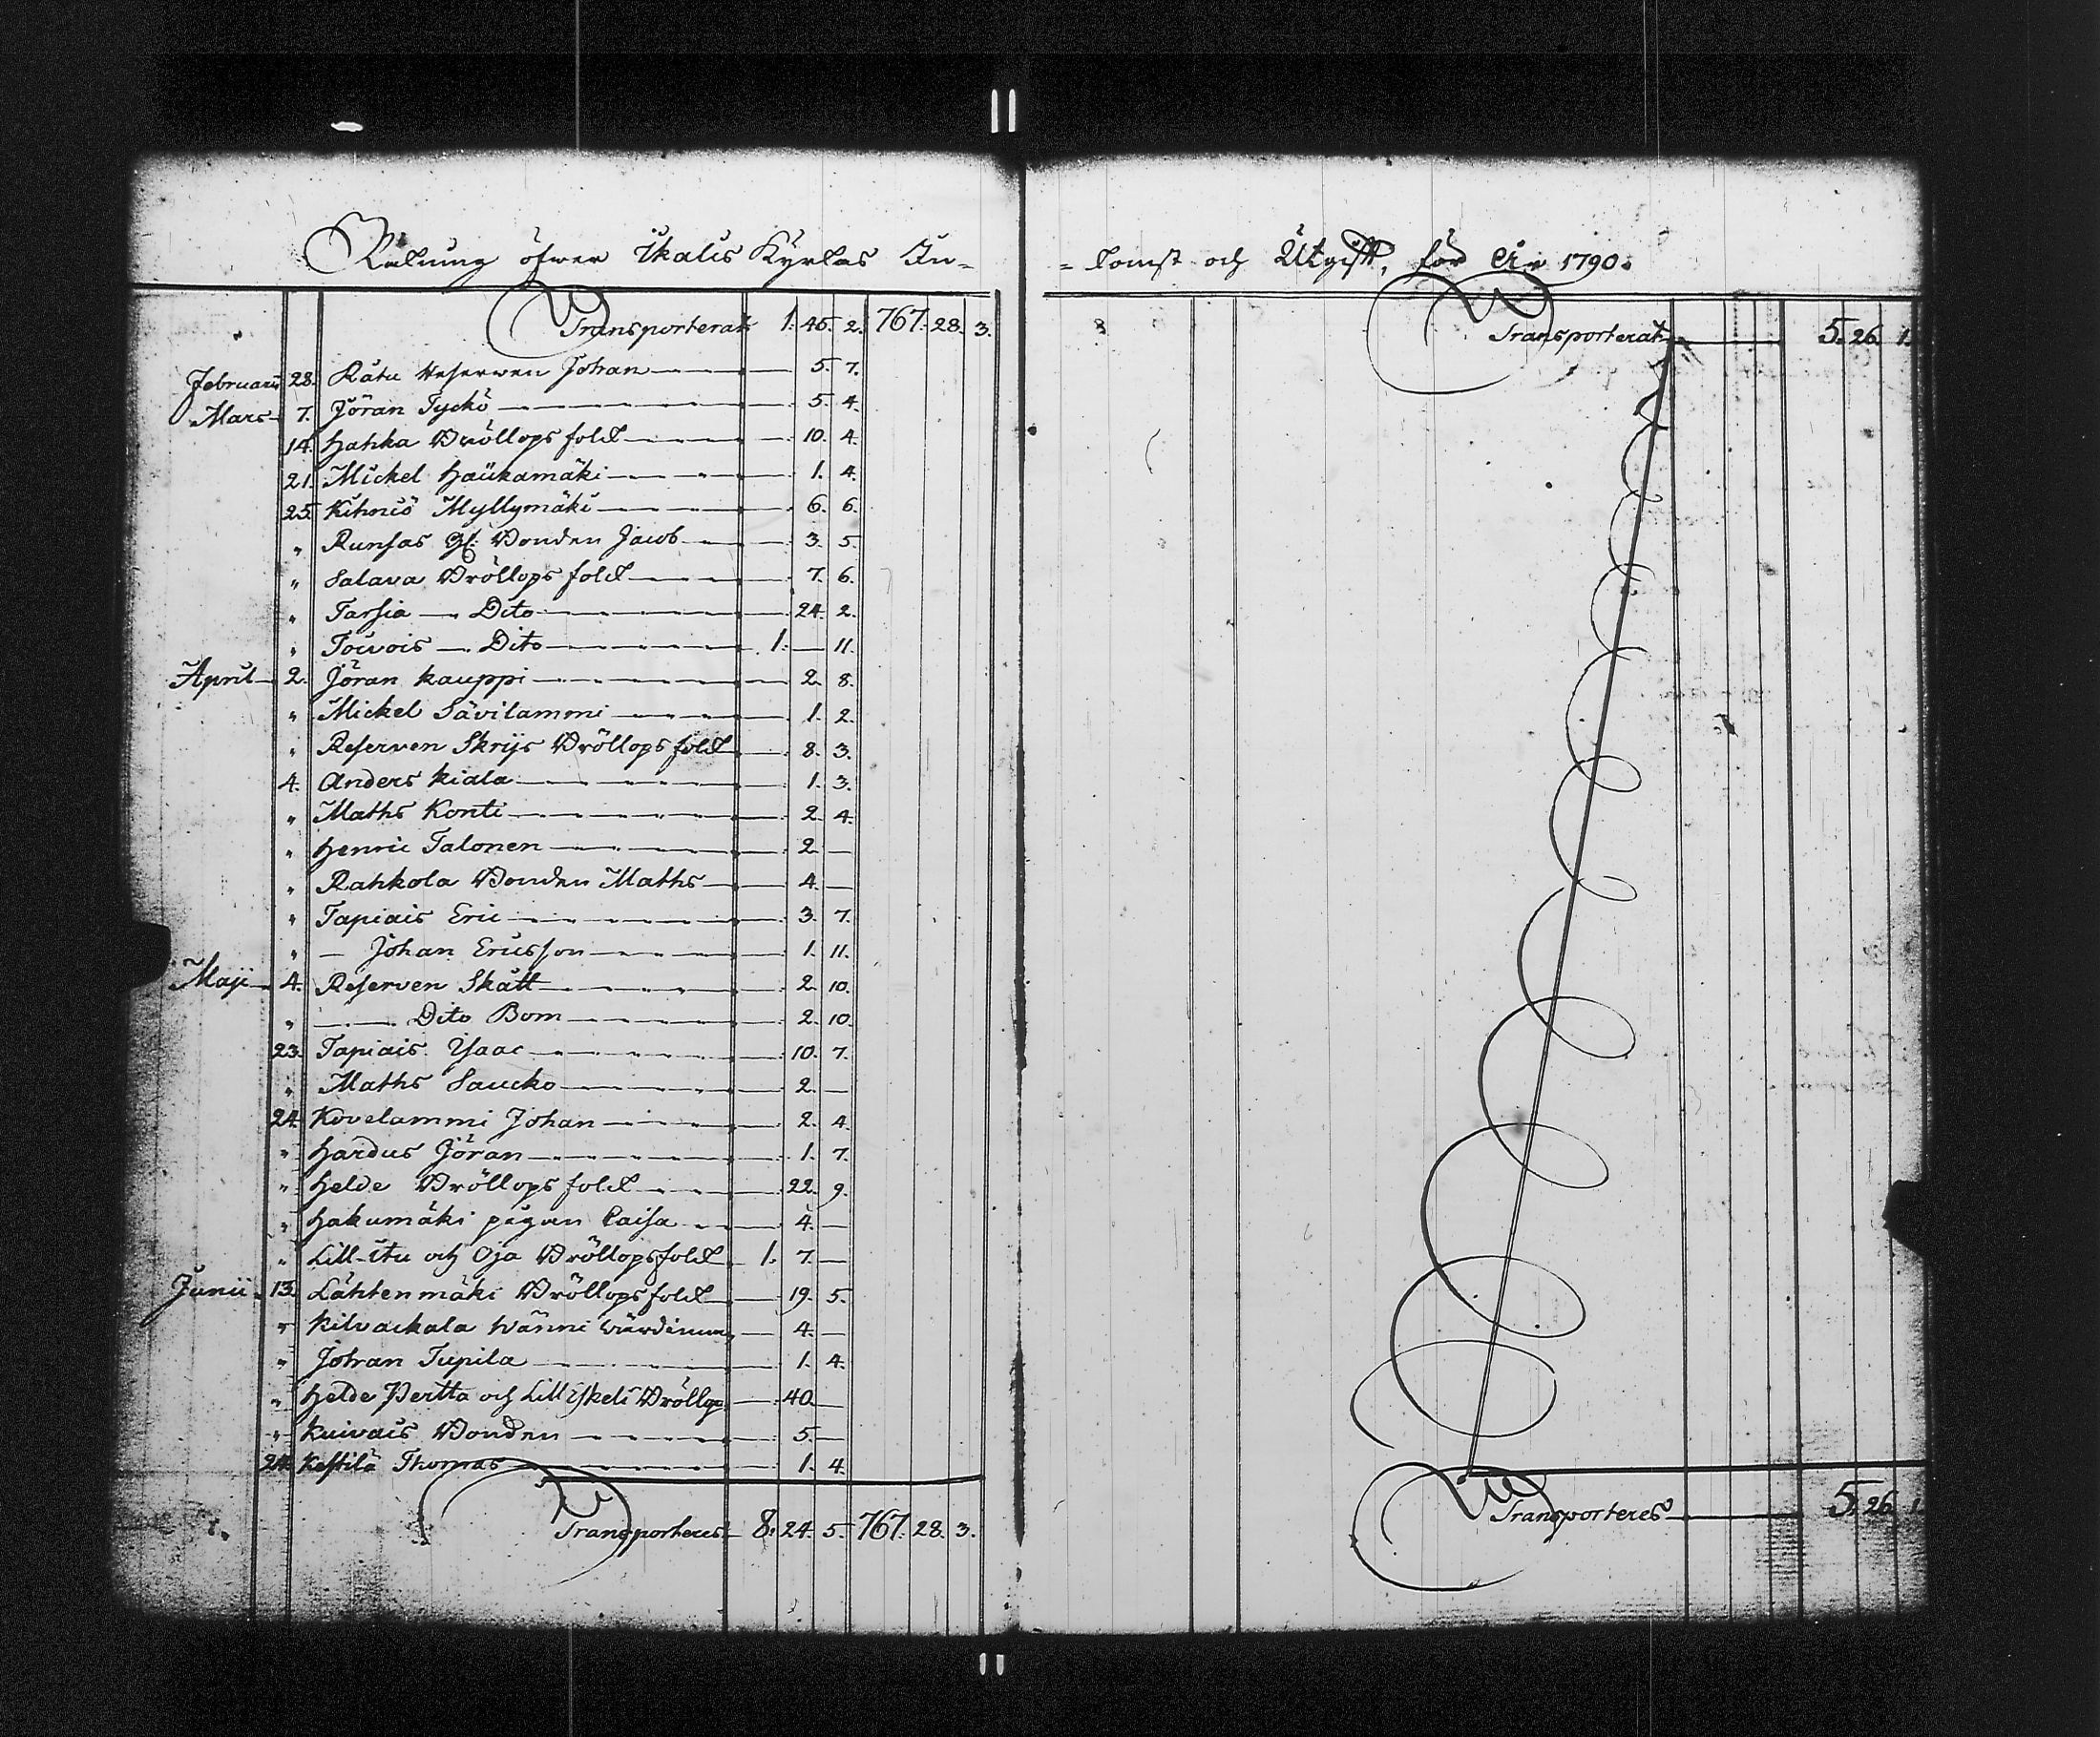 Räkning öfwer Ikalis Kyrkas In-
Transporterat 1. 45. 2. 767. 28. 3.
Februarii 28. Rätu Reserwen Johan 5. 7.
Mars 7. Jöran Tyckö 5. 4.
14. Hahka Bröllops folck 10. 4.
21. Mickel Haukamäki 1. 4.
25. Kihniö Myllymäki 6. 6.
" Runsas Gl. Bonden Jacob 3. 5.
" Salava Bröllops folck 7. 6.
" Tarsia — Dito 24. 2.
" Toivois — Dito 1. — 11.
April 2. Jöran Kauppi 2. 8.
" Mickel Sävilammi 1. 2.
" Reserven Skrijs Bröllops folck 8. 3.
4. Anders Kiala 1. 3.
" Maths Konti 2. 4.
" Henric Talonen 2. —
" Rahkola Bonden Maths 4. —
" Tapiais Eric 3. 7.
" — Johan Ericsson 1. 11.
Maji 4. Reserven Skatt 2. 10.
" — Dito Bom 2. 10.
23. Tapiais Isaac 10. 7.
" Maths Saucko 2. —
24. Kovelammi Johan 2. 4.
" Hardus Jöran 1. 7.
" Helde Bröllops folck 22. 9.
" Hakumäki pigan Caisa 4. —
" Lill-Itu och Oja Bröllopsfolck 1. 7. —
Junii 13. Lähtenmäki Bröllopsfolck 19. 5.
" Kilvackala Hänni 4. —
" Johan Tupila 1. 4.
" Helde Pertta och Lill Iskeli Bröllop 40. —
" Kuivais Bonden 5. —
24. Kestilä Thomas 1. 4.
Transporteres 8. 24. 5. 767. 28. 3.
= komst och Utgift, för År 1790.
Transporterat 5. 26. 1.
Transporteres 5. 26. 1